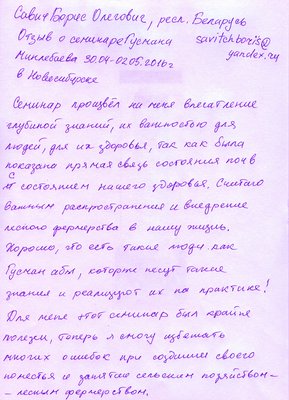 Савич Борис Олегович, респ. Беларусь
Отзыв о семинаре Гусмана
savitchboris@
yandex.ru
Минлебаева 30.04-02.05.2016г
в Новосибирске
Семинар произвёл на меня впечатление
глубиной знаний, их важностью для
людей, для их здоровья, так как была
показана прямая связь состояния почв
с состоянием нашего здоровья. Считаю
важным распространения и внедрение
лесного фермерства в нашу жизнь.
Хорошо, что есть такие люди как
Гусман абы, которые несут такие
знания и реализуют их на практике!
Для меня этот семинар был крайне
полезен, теперь я смогу избежать
многих ошибок при создании своего
поместья и занятие сельским хозяйством-
- лесным фермерством.